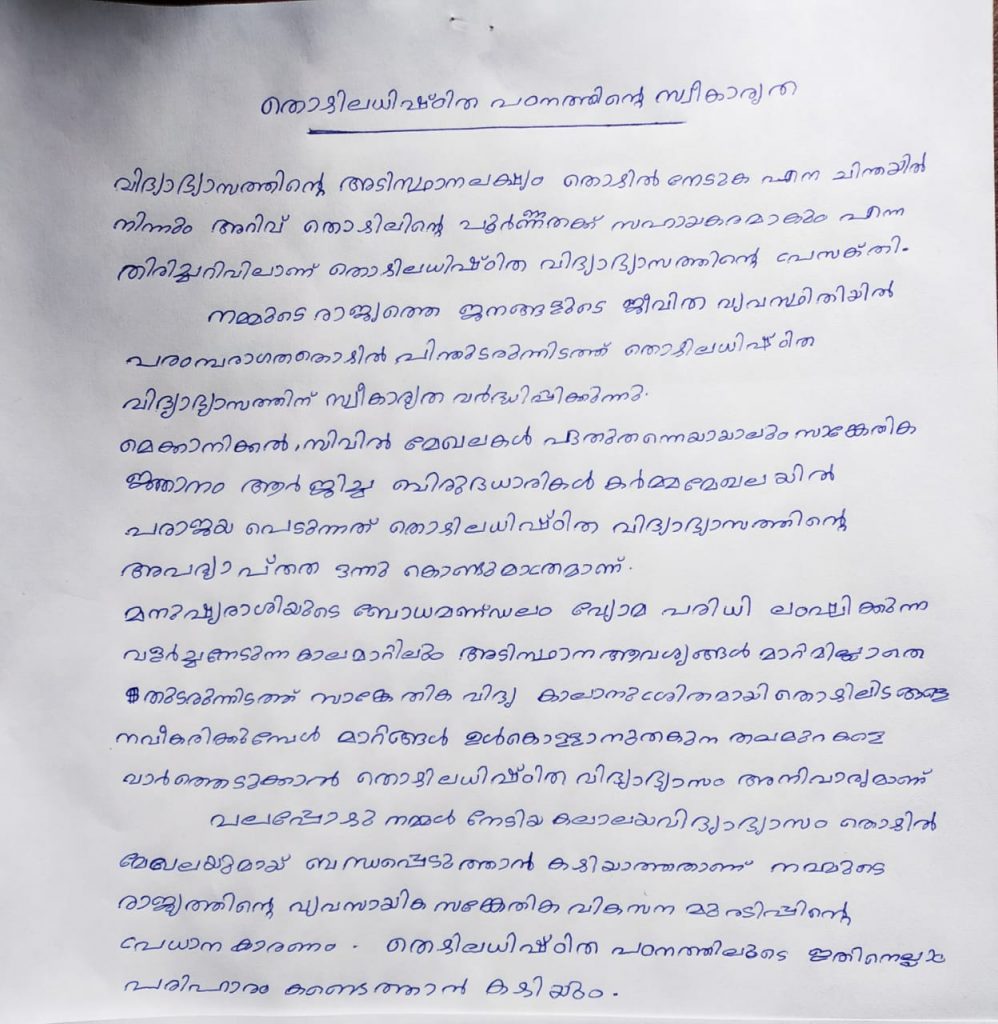 തൊഴിലധിഷ്ഠിത പഠനത്തിന്റെ സ്വീകാര്യത
വിദ്യാഭ്യാസത്തിന്റെ അടിസ്ഥാനലക്ഷ്യം തൊഴിൽ നേടുക എന്ന ചിന്തയിൽ
നിന്നും അറിവ് തൊഴിലിന്റെ പൂർണ്ണതക്ക് സഹായകരമാകും എന്ന
തിരിച്ചറിവിലാണ് തൊഴിലധിഷ്ഠിത വിദ്യാഭ്യാസത്തിന്റെ പ്രസക്തി.
നമ്മുടെ രാജ്യത്തെ ജനങ്ങളുടെ ജീവിത വ്യവസ്ഥിതിയിൽ
പരമ്പരാഗതതൊഴിൽ പിന്തുടരുന്നിടത്ത് തൊഴിലധിഷ്ഠിത
വിദ്യാഭ്യാസത്തിന് സ്വീകാര്യത വർദ്ധിപ്പിക്കുന്നു.
മെക്കാനിക്കൽ, സിവിൽ മേഖലകൾ ഏതുതന്നെയായാലും സാങ്കേതിക
ജ്ഞാനം ആർജ്ജിച്ച ബിരുദധാരികൾ കർമ്മമേഖലയിൽ
പരാജയ പെടുന്നത് തൊഴിലധിഷ്ഠിത വിദ്യാഭ്യാസത്തിന്റെ
അപര്യാപ്തത ഒന്നു കൊണ്ടുമാത്രമാണ്.
മനുഷ്യരാശിയുടെ ബോധമണ്ഡലം വ്യോമ പരിധി ലംഘിക്കുന്ന
വളർച്ചനേടുന്ന കാലമാറ്റിലും അടിസ്ഥാന ആവശ്യങ്ങൾ മാറ്റമില്ലാതെ
തുടരുന്നിടത്ത് സാങ്കേതിക വിദ്യ കാലാനുശ്രിതമായി തൊഴിലിടങ്ങളെ
നവീകരിക്കുമ്പോൾ മാറ്റങ്ങൾ ഉൾകൊള്ളാനുതകുന്ന തലമുറകളെ
വാർത്തെടുക്കാൻ തൊഴിലധിഷ്ഠിത വിദ്യാഭ്യാസം അനിവാര്യമാണ്
പലപ്പോഴും നമ്മൾ നേടിയ കലാലയവിദ്യാഭ്യാസം തൊഴിൽ
മേഖലയുമായ് ബന്ധപ്പെടുത്താൻ കഴിയാത്തതാണ് നമ്മുടെ
രാജ്യത്തിന്റെ വ്യവസായിക സങ്കേതിക വികസന മുരടിപ്പിന്റെ
പ്രധാന കാരണം. തെഴിലധിഷ്ഠിത പഠനത്തിലുടെ ഇതിനെല്ലാം
പരിഹാരം കണ്ടെത്താൻ കഴിയും.